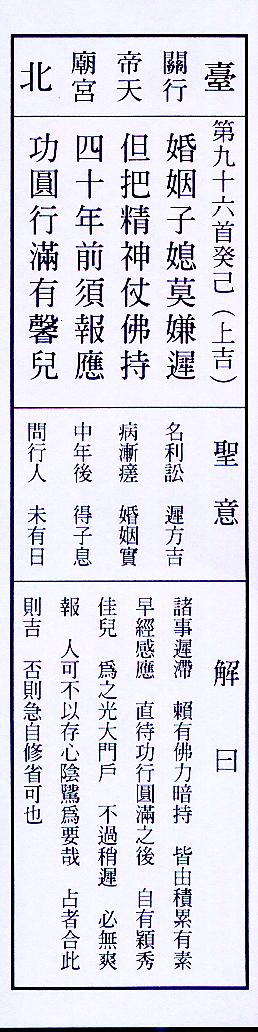 臺
關行
帝天
廟宮
北
第九十六首癸己（上吉）
婚姻子媳莫嫌遲
但把精神仗佛持
四十年前須報應
功圓行滿有馨兒
聖意
名利訟　遲方吉
病漸瘥　婚姻實
中年後　得子息
問行人　未有日
解曰
諸事遲滯　賴有佛力暗持　皆由積累有素
早經感應　直待功行圓滿之後　自有穎秀
佳兒　為之光大門戶　不過稍遲　必無爽
報　人可不以存心陰騭為要哉　占者合此
則吉　否則急自修省可也